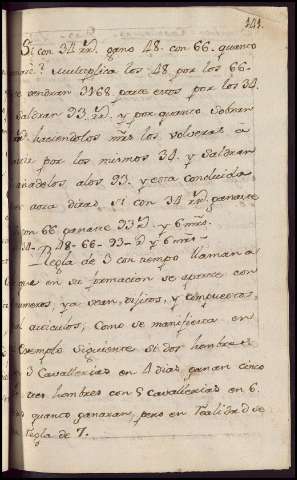 141.
Si con 34 rs. gano 48. con 66. quanto
Multiplica los 48 por los 66.
vendran 3168 parte estos por los 34.
Saldran 93. rs. y por quanto sobran
haciendolos mrs. los volveras a
por los mismos 34. y saldran
añadelos alos 93. y esta concluida
aora diras, si con 34 rs. ganaste
con 66 ganaste 93 rs. y 6 mrs.
34 - 48 - 66 - 93 - y 6 mrs.
Regla de 3 con tiempo llaman a
que en su formacion se aparece con
numeros, ya sean, dijitos, y compuestos,
articulos; Como se manifiesta en
exemplo siguiente si dos hombres
3 Cavallerias en 4 dias ganan cinco
tres hombres con 5 cavallerias en 6.
quanto ganaran, pero en realidad se
regla de 7.